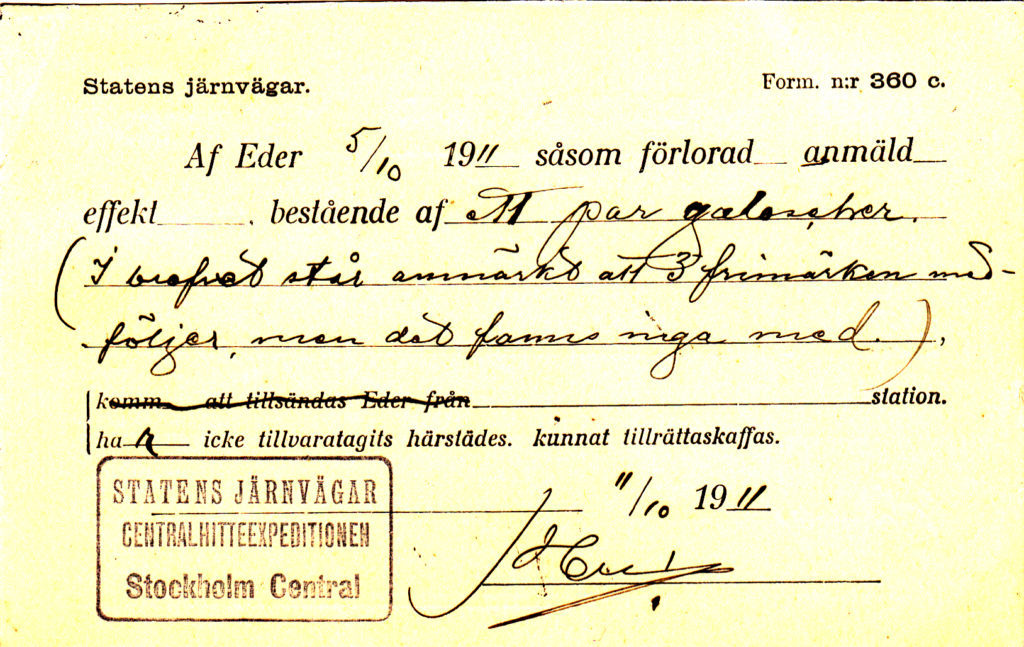 Statens järnvägar.
Form. n:r 360 c.
Af Eder 5/10 1911 såsom förlorad anmäld
effekt . bestående af ett par galoscher.
(I brefvet står anmärkt att 3 frimärken med-
följer, men det fanns inga med.),
komm att tillsändas Eder från station.
har icke tillvaratagits härstädes. kunnat tillrättaskaffas.
STATENS JÄRNVÄGAR
CENTRALHITTEEXPEDITIONEN
Stockholm Central
11/10 1911